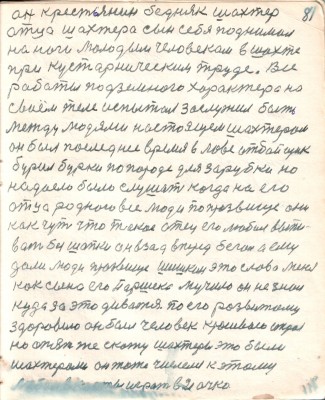 81
он крестьянин бедняк шахтер
отца шахтера сын себя поднимал
на ноги молодым человеком в шахте
при кустарническим труде. Все
работы подземного характера на
своём теле испытал заслужил быть
между людями настоящем шахтером
он был последнее время в лове отбойщик
бурил бурки по породе для зарубки но
надоело было слушать когда на его
отца родного все люди по прозвище они
как чуть что так отец его любил
вать бы шапки он взад вперед бегал а ему
дали люди прозвище шишкин это слово меня
как сына его Паршека мучило он не знал
куда за это диватся по его розвитому
здоровию он был человек
но опять же скажу шахтеры это были
шахтерами он тоже числом к этому
играт в 21 очко